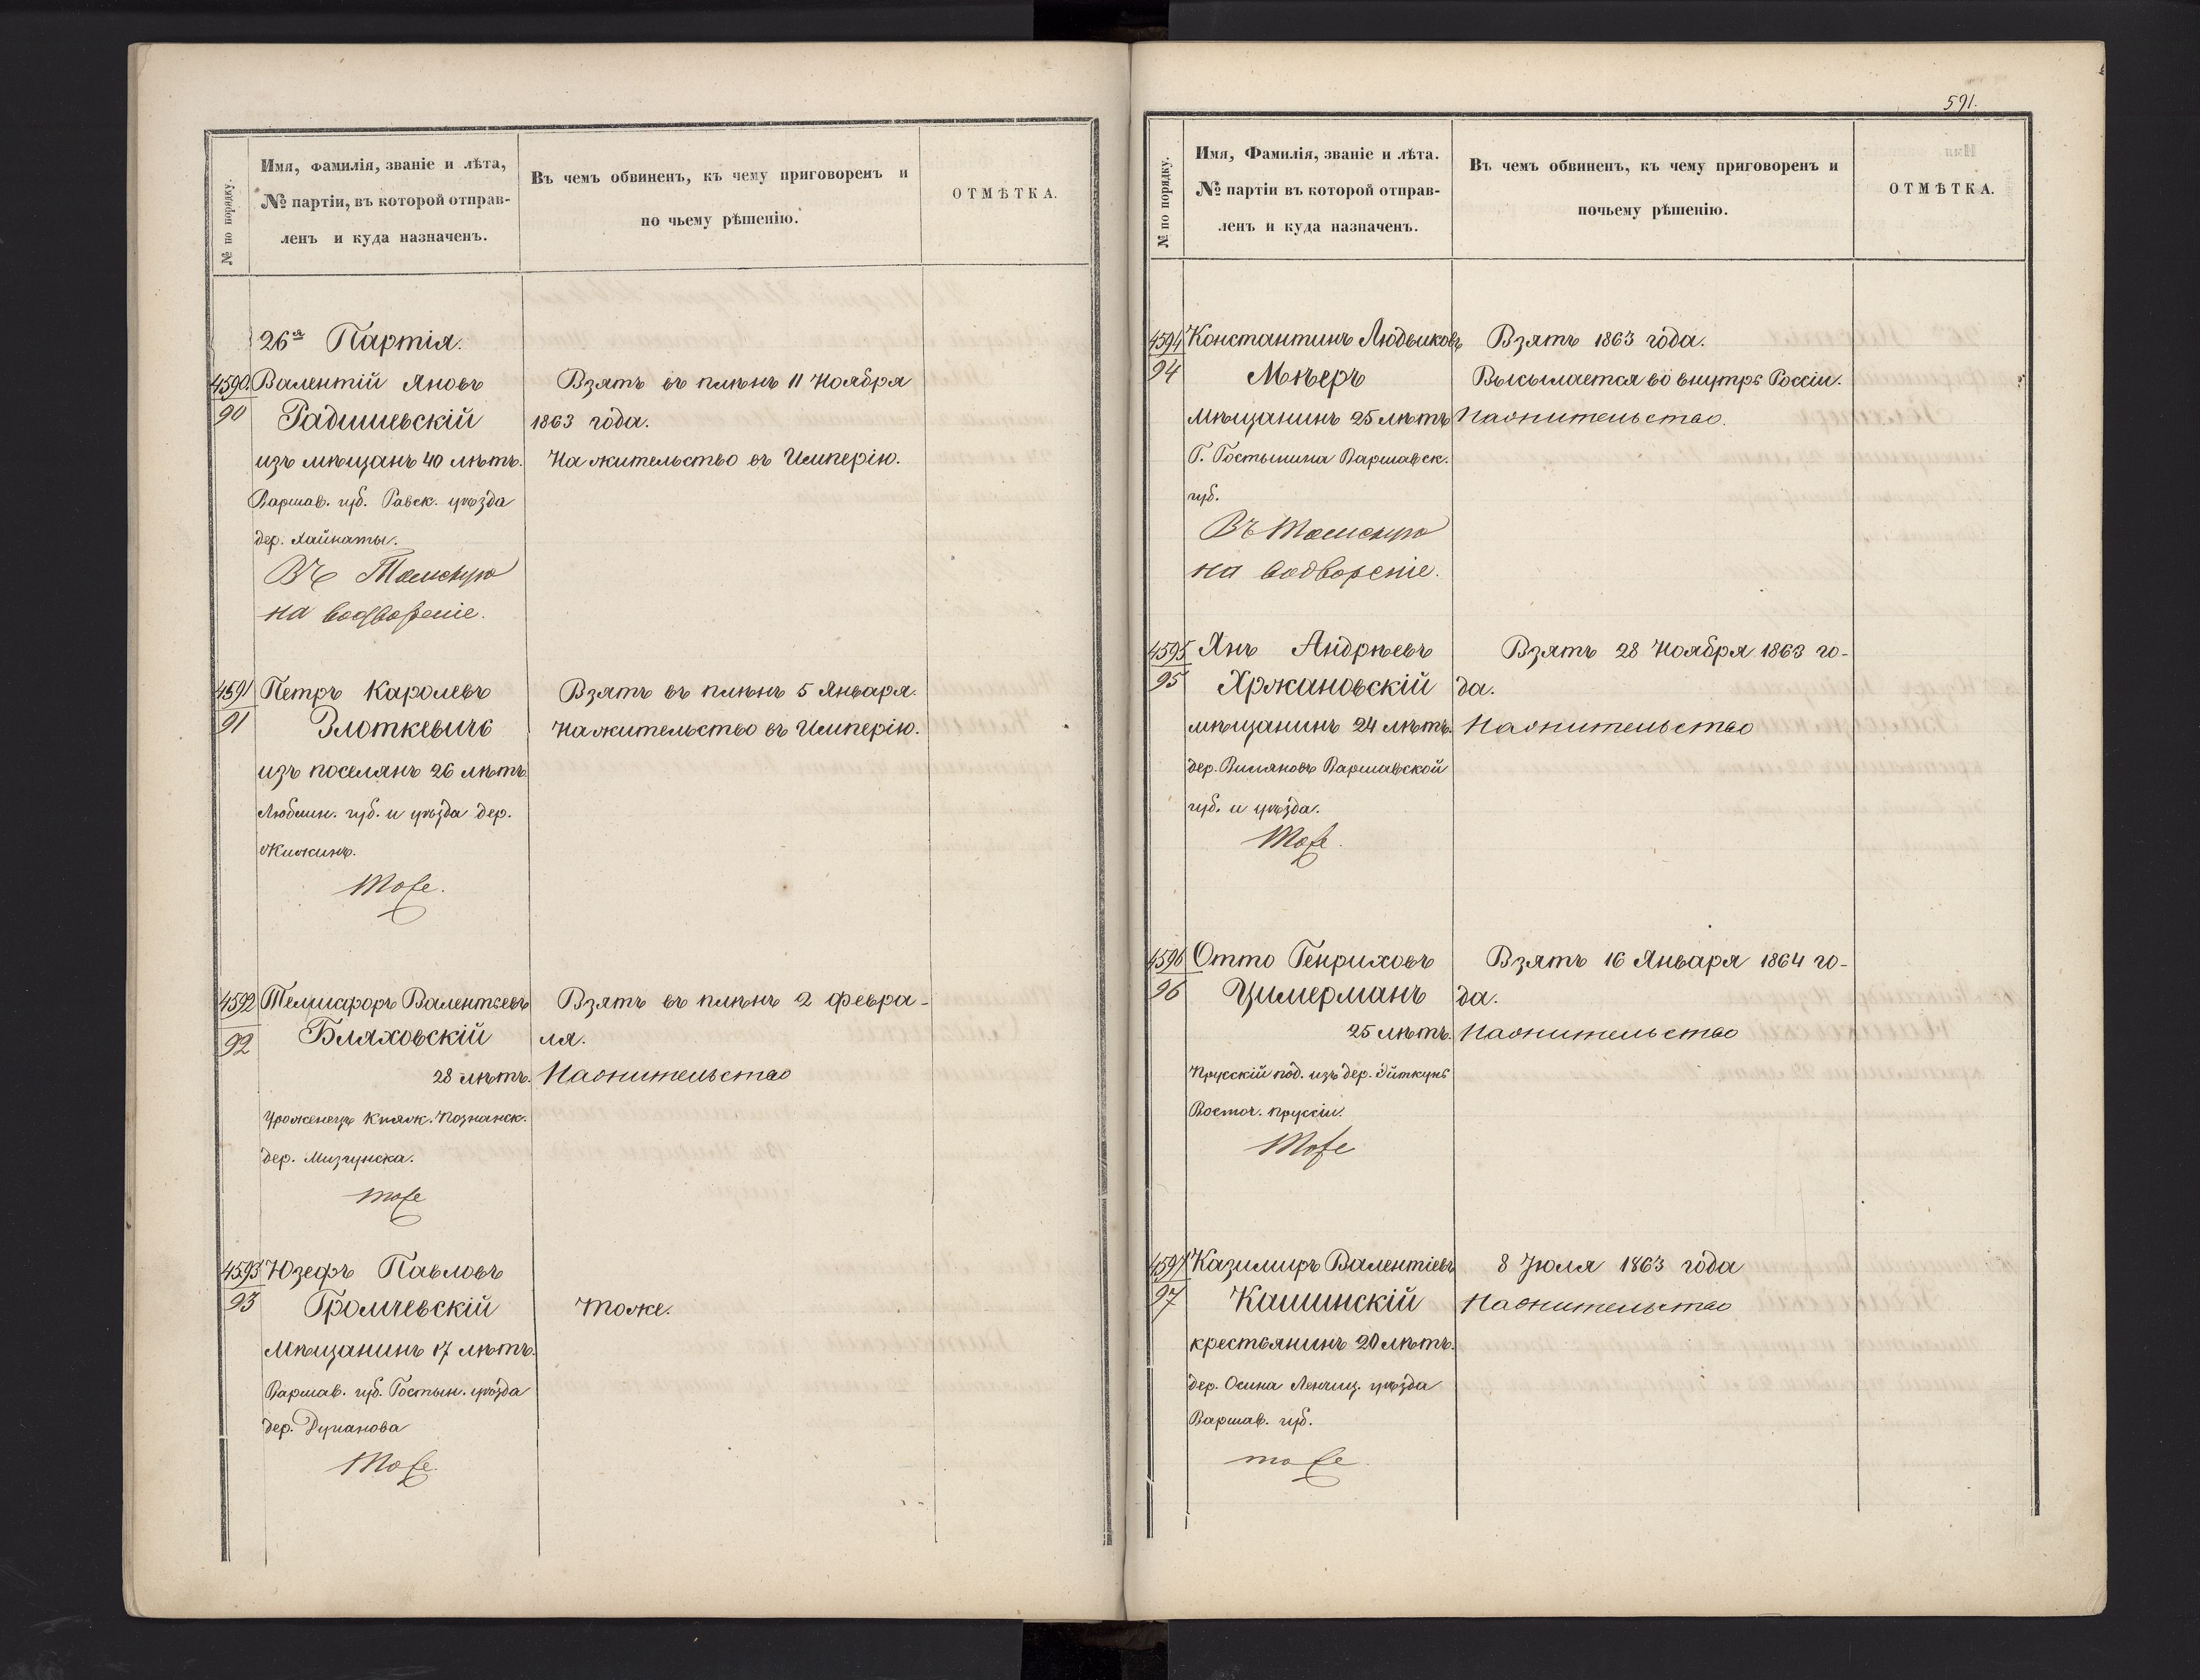 № по порядку.
Имя, фамилія, званіе и лѣта,
№ партіи, въ которой отправ-
ленъ и куда назначенъ.
Въ чемъ обвиненъ, къ чему приговоренъ и
по чьему рѣшенію.
ОТМѢТКА.
26я Партія.
4590.
90
Валентій Яновъ
Радишевскій
изъ мѣщанъ 40 лѣтъ.
Варшав. губ. Равск. уѣзда
дер. Хайнаты.
Въ Томскую
на водвореніе.
Взятъ въ плѣнъ 11 Ноября
1863 года.
На жительство въ Имперію.
4591
91
Петръ Каролевъ
Злоткевичъ
изъ поселянъ 26 лѣтъ
Люблин. губ. и уѣзда дер.
Жижинъ.
Тоже.
Взятъ въ плѣнъ 5 Января.
На жительство въ Имперію.
4592
92
Валентьевъ
Бляховскій
28 лѣтъ.
Уроженецъ Княж. Познанск.
дер.
тоже
Взятъ въ плѣнъ 2 февра-
ля.
На жительство
4593
93
Юзефъ Павловъ
Громчевскій
Мѣщанинъ 17 лѣтъ.
Варшав. губ. Гостын. уѣзда
дер.
Тоже.
Тоже.
591.
№ по порядку.
Имя, Фамилія, званіе и лѣта.
№ партіи въ которой отправ-
ленъ и куда назначенъ.
Въ чемъ обвиненъ, къ чему приговоренъ и
почьему рѣшенію.
ОТМѢТКА.
4594
94
Константинъ Людвиковъ
Мѣеръ
мѣщанинъ 25 лѣтъ
Г. Гостынина Варшавск.
губ.
Въ Томскую
на водвореніе.
Взятъ 1863 года.
Высылается во внутрь Россіи.
На жительство.
4595
95
Янъ Андрѣевъ
Хржановскій
мѣщанинъ 24 лѣтъ.
дер. Вилляновъ Варшавской
губ. и уѣзда.
Тоже.
Взятъ 28 Ноября 1863 го-
да.
На жительство
4596
96
Отто Генриховъ
Цимерманъ
25 лѣтъ.
Прусскій под. изъ дер. Эйткунъ
Восточ. Пруссіи.
Тоже
Взятъ 16 Января 1864 го-
да.
На жительство
4597
97
Казимиръ Валентіевъ
Кашинскій
крестьянинъ 20 лѣтъ.
дер. Осина Ленчиц. уѣзда
Варшав. губ.
тоже.
8 Іюля 1863 года
На жительство